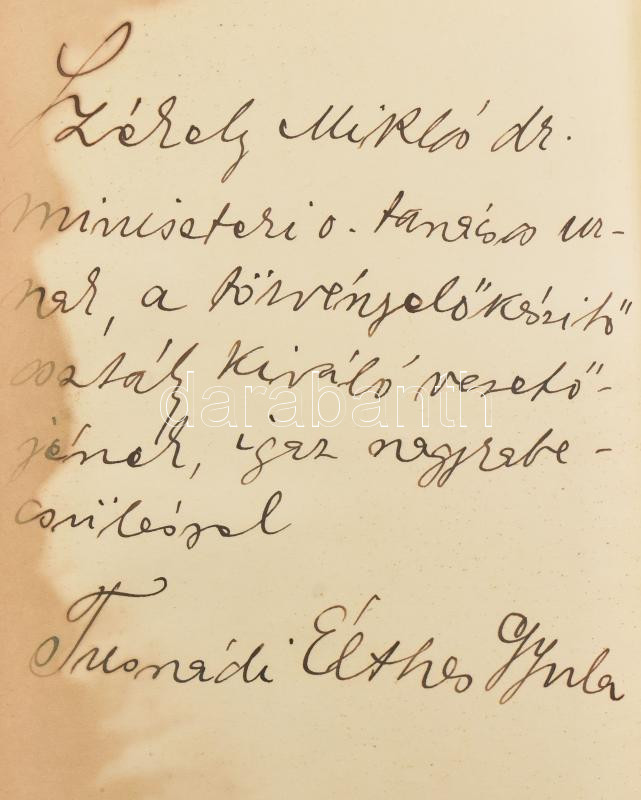 Székely Miklós dr.
miniszteri o. tanácsos úr-
nak, a törvényelőkészitő
osztály kiváló vezető-
darabanth
jének, igaz nagyrabe-
csüléssel
Tusnádi Élthes Gyula